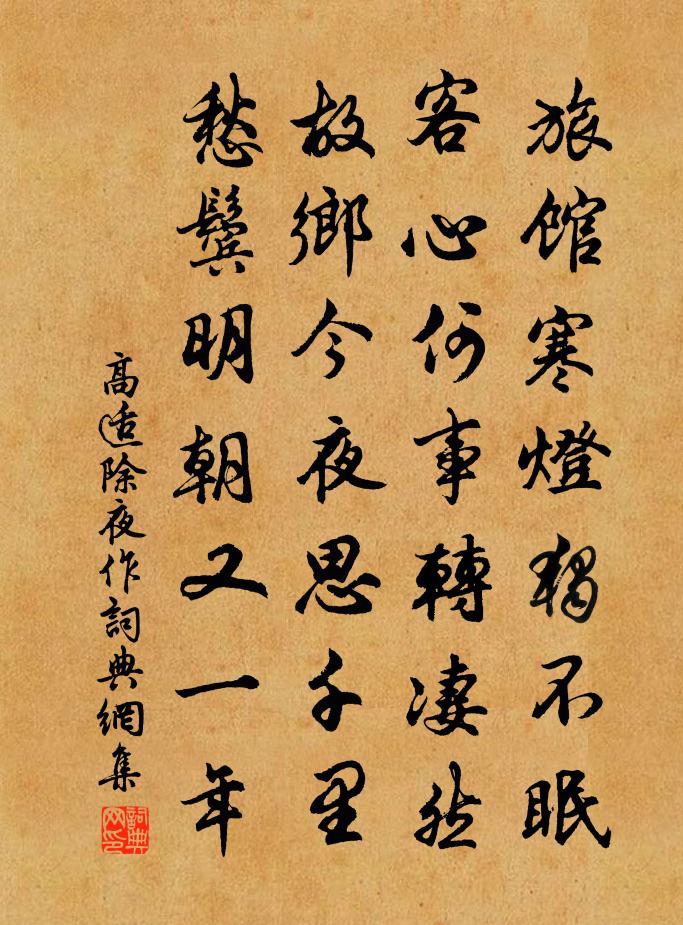 旅館寒燈獨不眠
客心何事轉凄然
故鄉今夜思千里
愁鬢明朝又一年
高適除夜作詞典網集
詞典网印